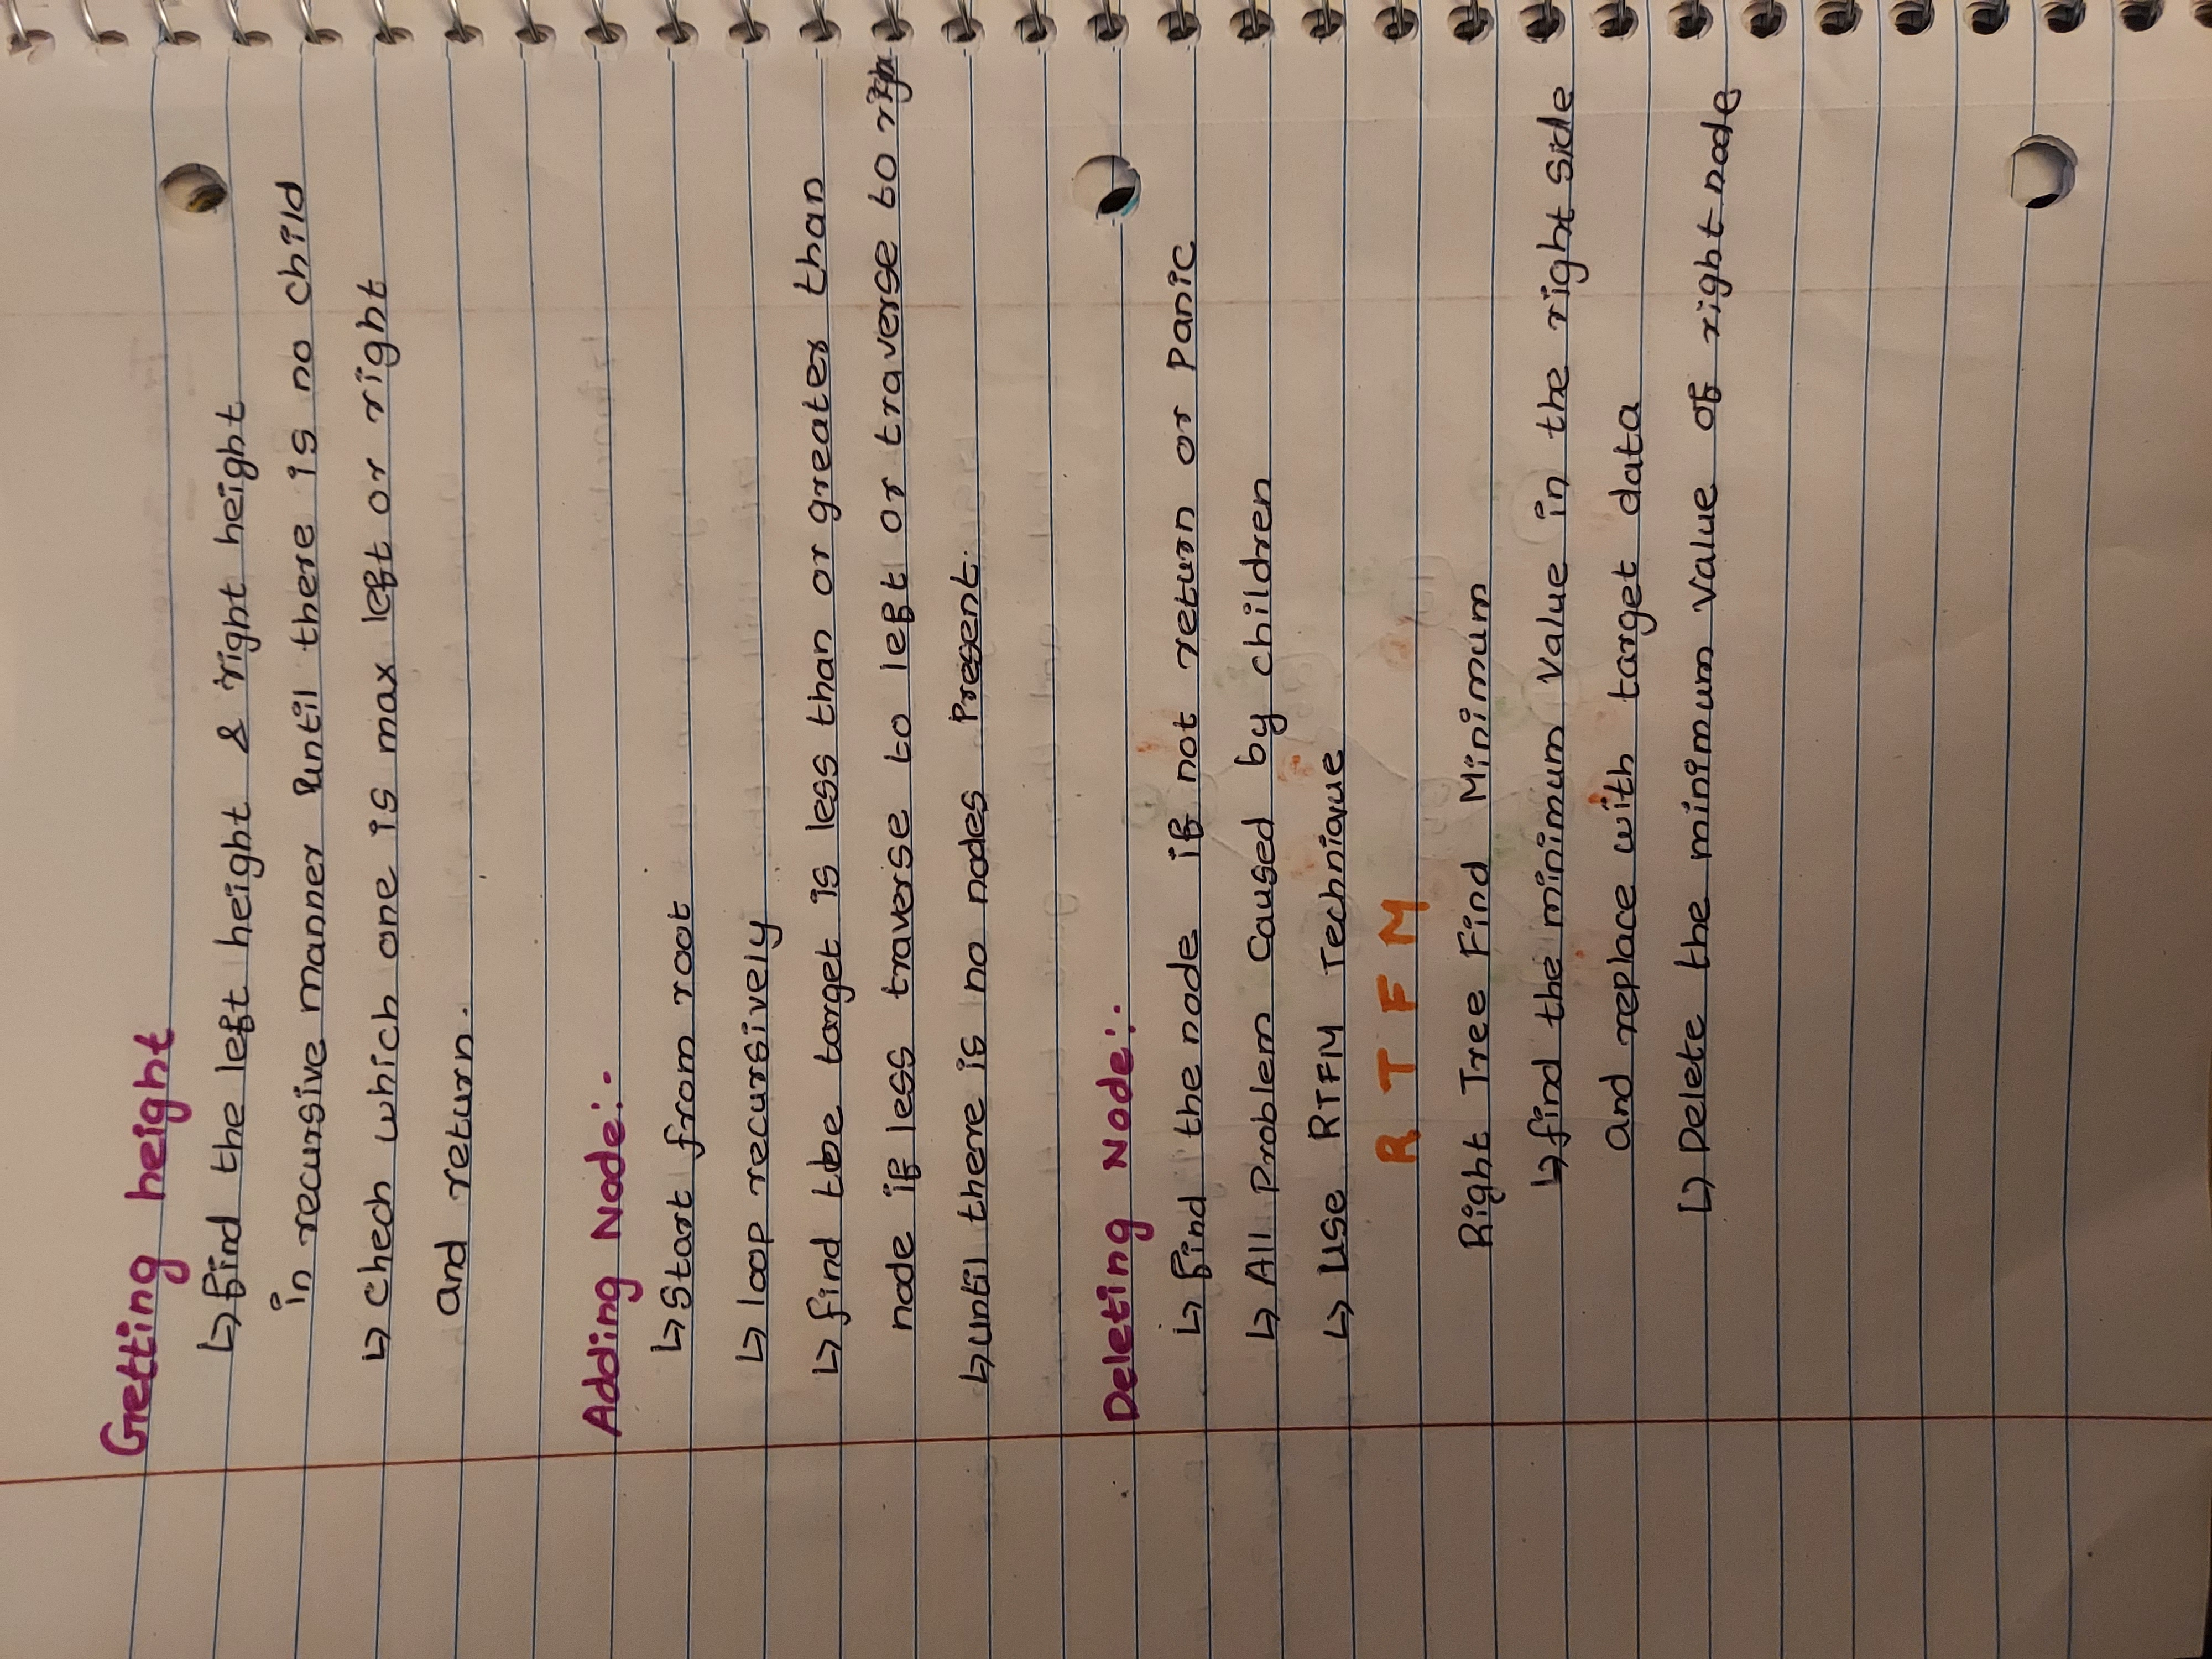 Getting height
↳ find the left height & right height
in recursive manner until there is no child
↳ chech which one is max left or right
and return.
Adding Node:-
↳ Start from root
↳ loop recursively
↳ find the target is less than or greater than
node if less traverse to left or traverse to right
↳ until there is no nodes Present.
Deleting Node:-
↳ find the node if not return or Panic
↳ All Problem Caused by children
↳ Use RTFM Technique
R T F M
Right Tree Find Minimum
↳ find the minimum Value in the right side
and replace with target data
↳ Delete the minimum Value of right node